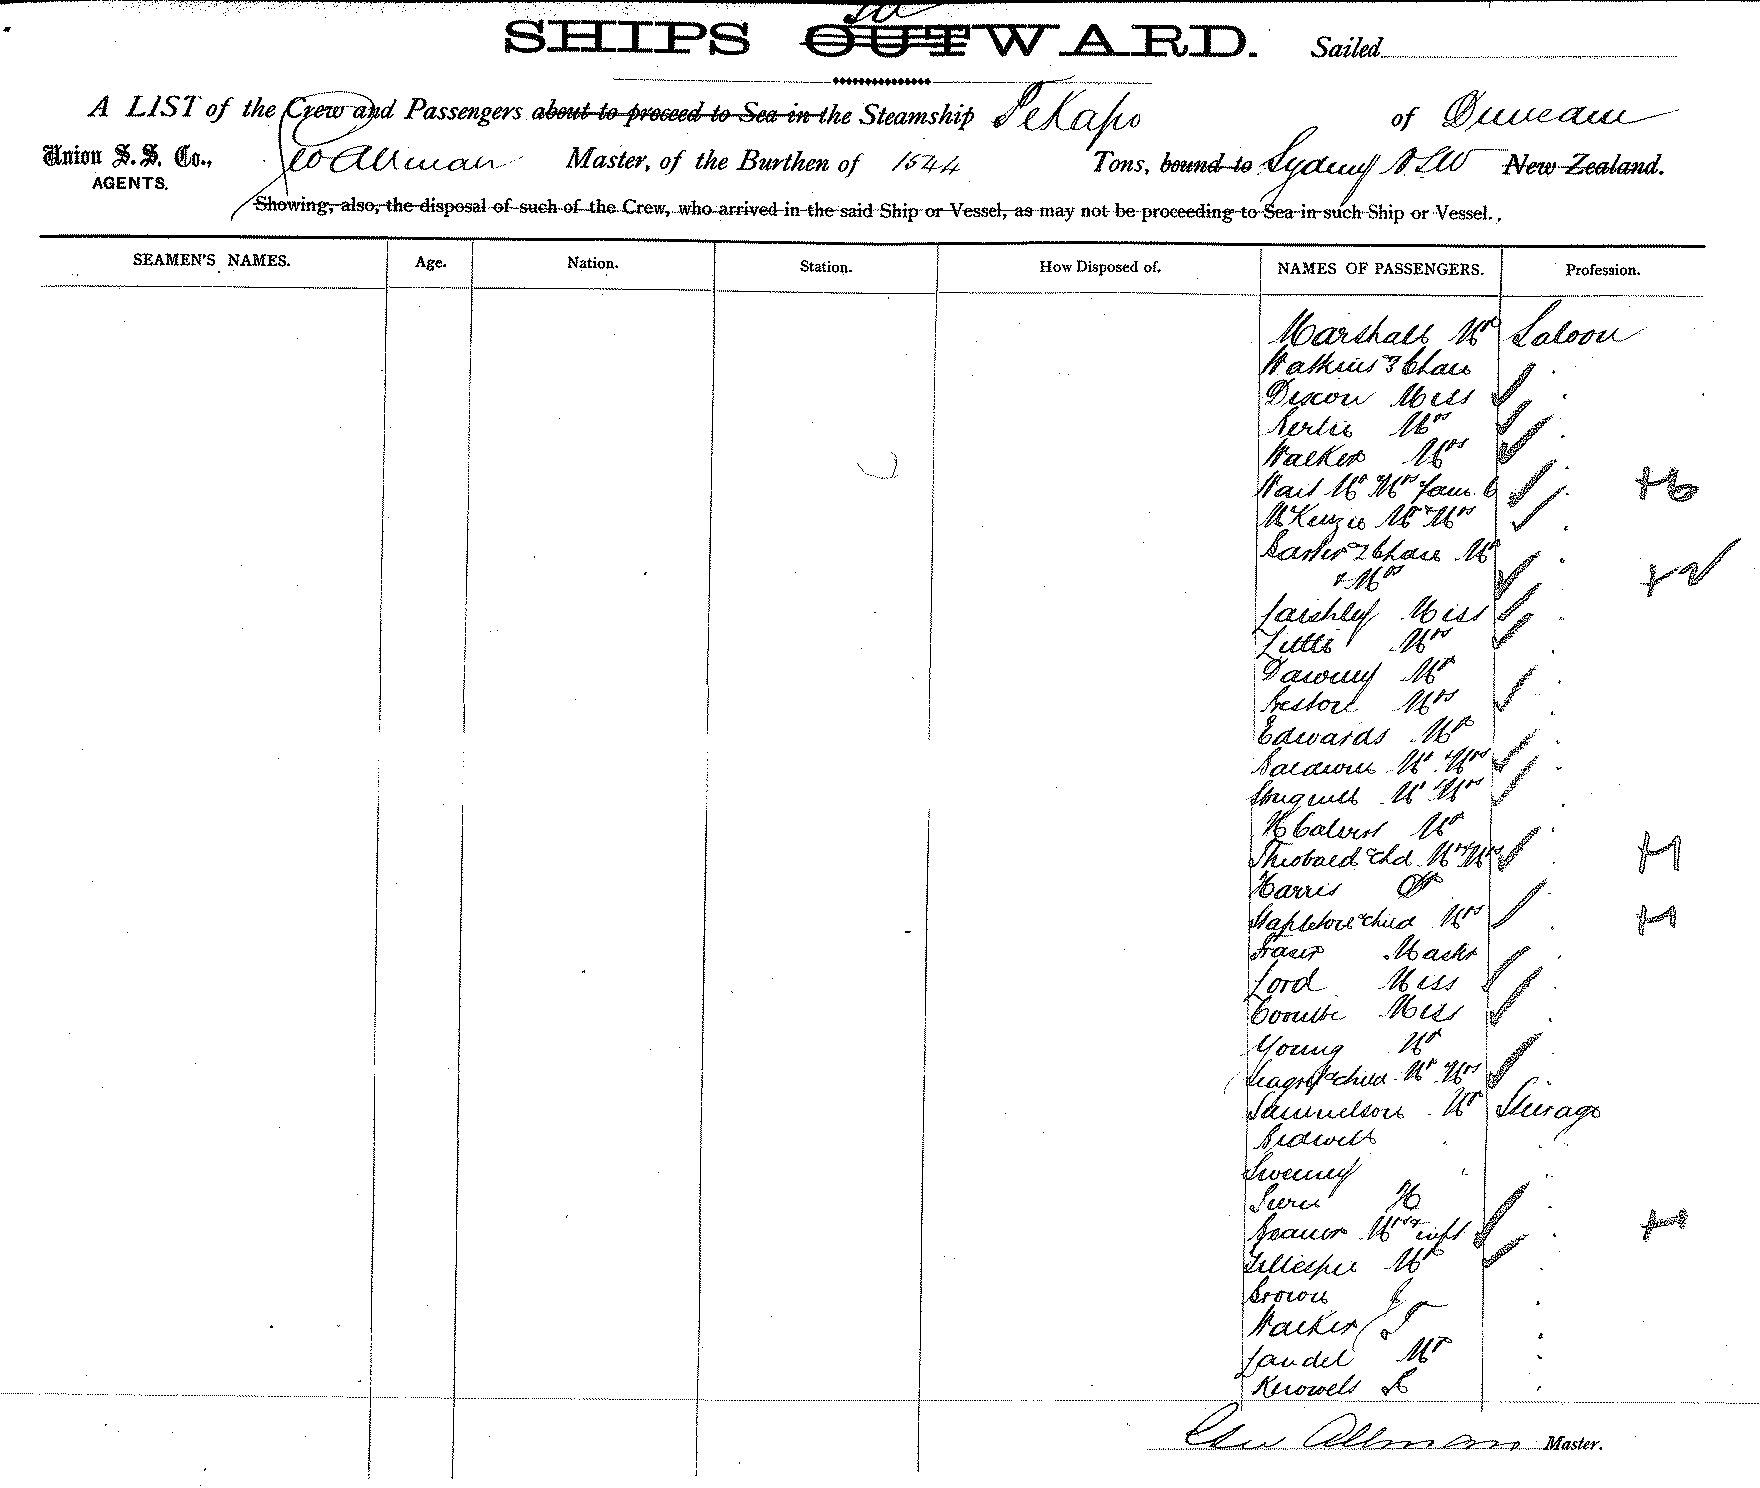 In
SHIPS OUTWARD. Sailed
A LIST of the Crew and Passengers about to proceed to Sea in the Steamship TeKapo of Dunedin
Union S. S. Co., Geo Allman Master, of the Burthen of 1544 Tons, bound to Sydney NSW New Zealand.
AGENTS.
Showing, also, the disposal of such of the Crew, who arrived in the said Ship or Vessel, as may not be proceeding to Sea in such Ship or Vessel.
SEAMEN'S NAMES. Age. Nation. Station. How Disposed of. NAMES OF PASSENGERS. Profession.
Marshall Mr Saloon
Watkins
Dixon Miss
Mrs
Walker Mrs
Wait Mr & Mrs fam. 6 +6
McKenzie Mr & Mrs
Mr
& Mrs +2
Laishley Miss
Little Mrs
Downey Mr
Preston Mrs
Edwards Mr
Baldwin Mr & Mrs
Mr & Mrs
McCalvert Mr
Theobald & chd Mr & Mrs +1
Harris Dr
Stapleton & child Mrs +1
Fraser Mastr
Lord Miss
Coombe Miss
Young Mr
Seagrof & child Mr & Mrs
Samuelson Mr Steerage
Bidwell
Sweeney
H
Mrs & inft +1
Gillespie Mr
Brown J
Walker T
Landel Mr
Knowels
Geo Allman Master.